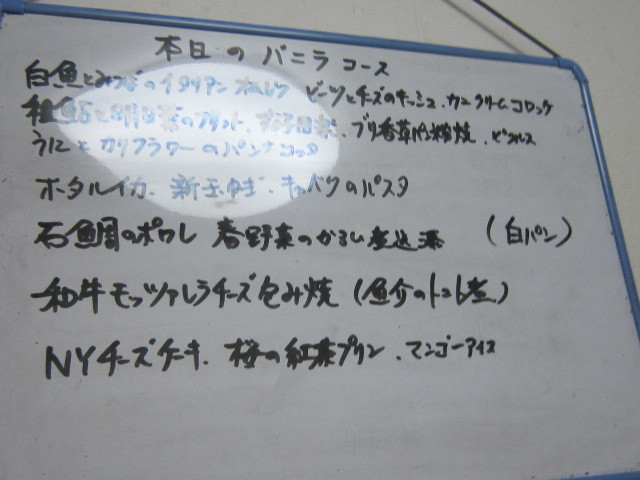 本日のバニラコース
白魚とみつばのイタリアンオムレツ ビーツとチーズのキッシュ、カニクリームコロッケ
稚鮎と明日葉のフリット、 ブリ香草パン粉焼、ピクルス
うにとカリフラワーのパンナコッタ
ホタルイカ、新玉ねぎ、キャベツのパスタ
石鯛のポワレ 春野菜のかるい煮込添 (白パン)
和牛モッツァレラチーズ包み焼 (魚介のトマト煮)
NYチーズケーキ、桜の紅茶プリン、マンゴーアイス